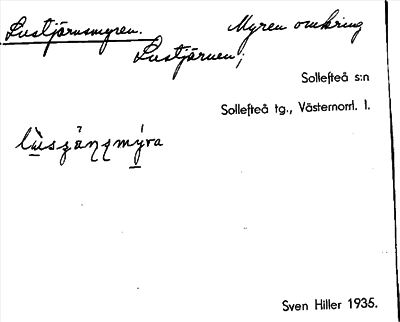 Lustjärnsmyren. Myren omkring
Lustjärnen;
Sollefteå s:n
Sollefteå tg., Västernorrl. l.
Sven Hiller 1935.